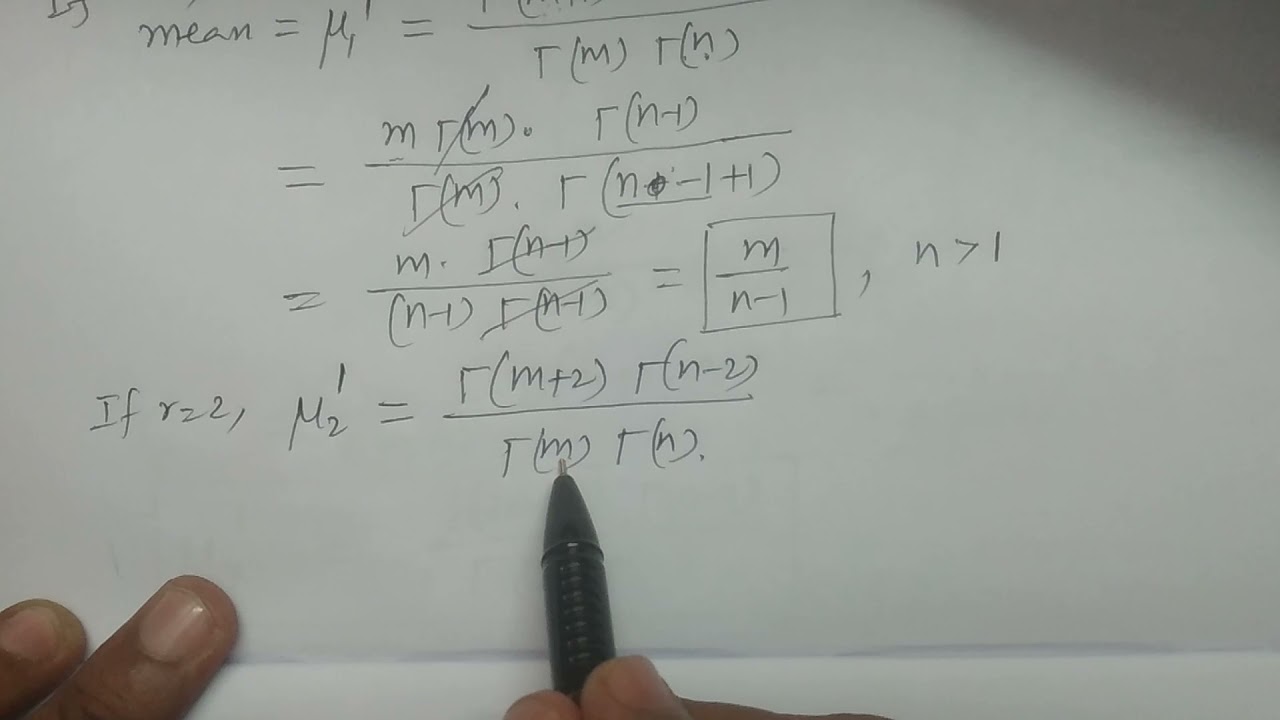 mean = μ₁' = / Γ(m) Γ(n)
= m Γ(m). Γ(n-1) / Γ(m). Γ(n-1+1)
= m. Γ(n-1) / (n-1) Γ(n-1) = m / n-1 , n>1
If r=2, μ₂' = Γ(m+2) Γ(n-2) / Γ(m) Γ(n).